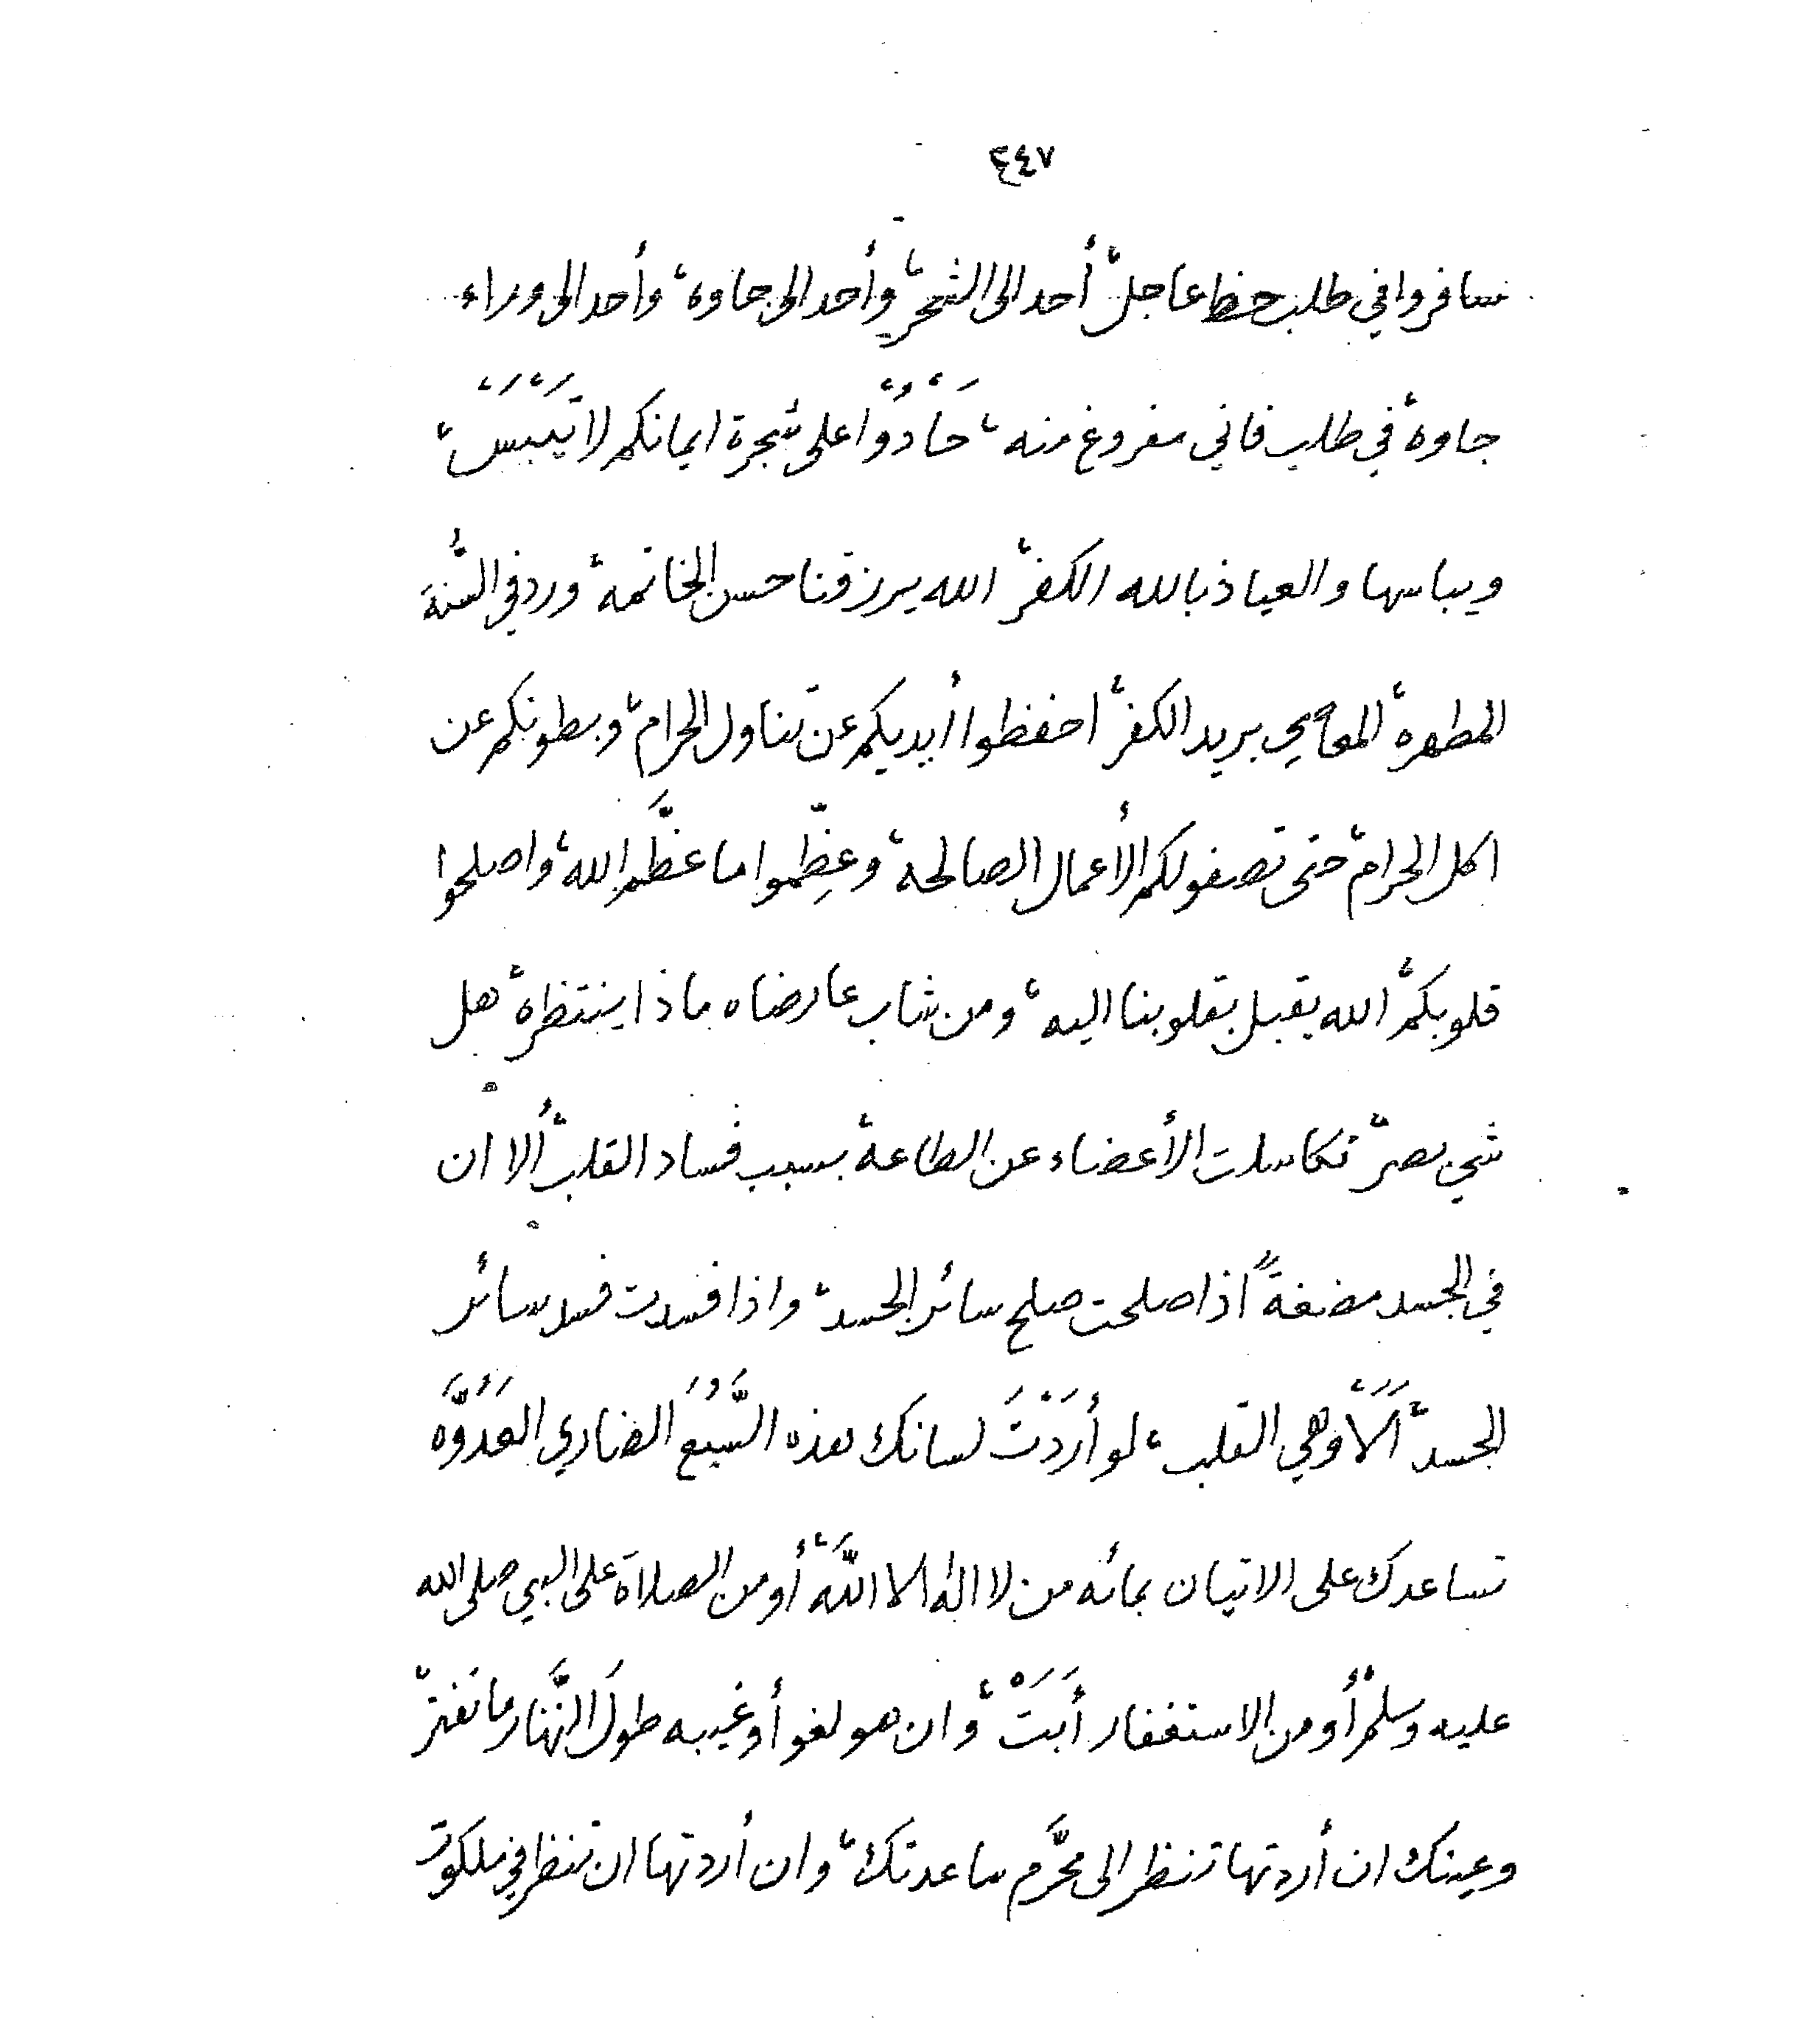 ٢٤٧
سافروا في طلب حظ عاجل، أحد الى الشحر، وأحد الى جاوه، وأحد الى وراء
جاوه، في طلب فاني مفروغ منه، حَاذُوْا على شجرة ايمانكم لا تَيْبَسْ،
ويباسها والعياذ بالله الكفر، الله يرزقنا حسن الخاتمة، ورد في السُّنة
المطهره، المعاصي بريد الكفر، احفظوا أيديكم عن تناول الحرام، وبطونكم عن
اكل الحرام، حتى تصفو لكم الأعمال الصالحة، وعظِّموا ما عظَّم الله، واصلحوا
قلوبكم، الله يقبل بقلوبنا اليه، ومن شاب عارضاه ماذا ينتظره، هل
شي بصر، تكاسلت الأعضاء عن الطاعة، بسبب فساد القلب، ألا ان
في الجسد مضغةً اذا صلحت صلح سائر الجسد، واذا فسدت فسد سائر
الجسد، اَلَا وهي القلب، لو أَرَدْتَ لسانك هذه السَّبُعَ الضاري العَدُوَّه
تساعدك على الاتيان بمائه من لا اله الا اللَّه، أو من الصلاة على النبي صلى الله
عليه وسلم، أو من الاستغفار أَبَتْ، وان هو لغو أو غيبه طولَ النَّهار ما تفتر،
وعينك ان أردتها تنظر الى محرَّم ساعدتك، وان أردتها ان تنظر في ملكوت